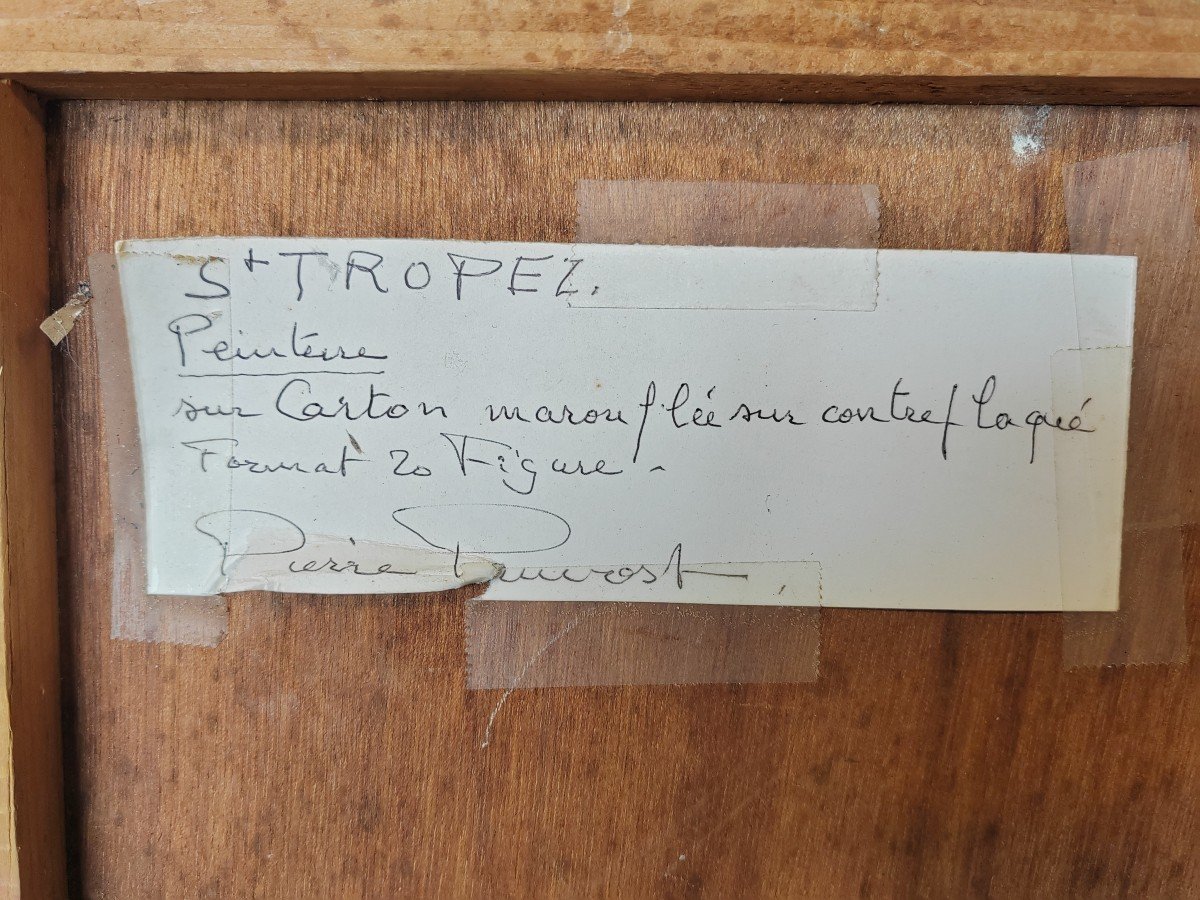 St TROPEZ.
Peinture
sur Carton marouflée sur contreplaqué
Format 20 Figure.
Pierre Pruvost.